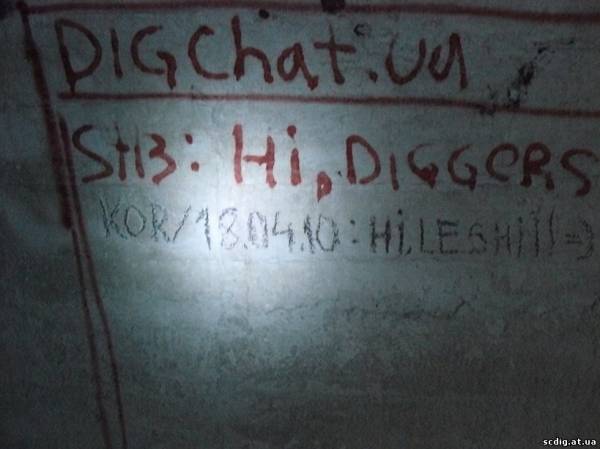 DIGChat.ua
St13: Hi, DIGGERS
KOR/18.04.10: HI, LESHIY! =)
scdig.at.ua